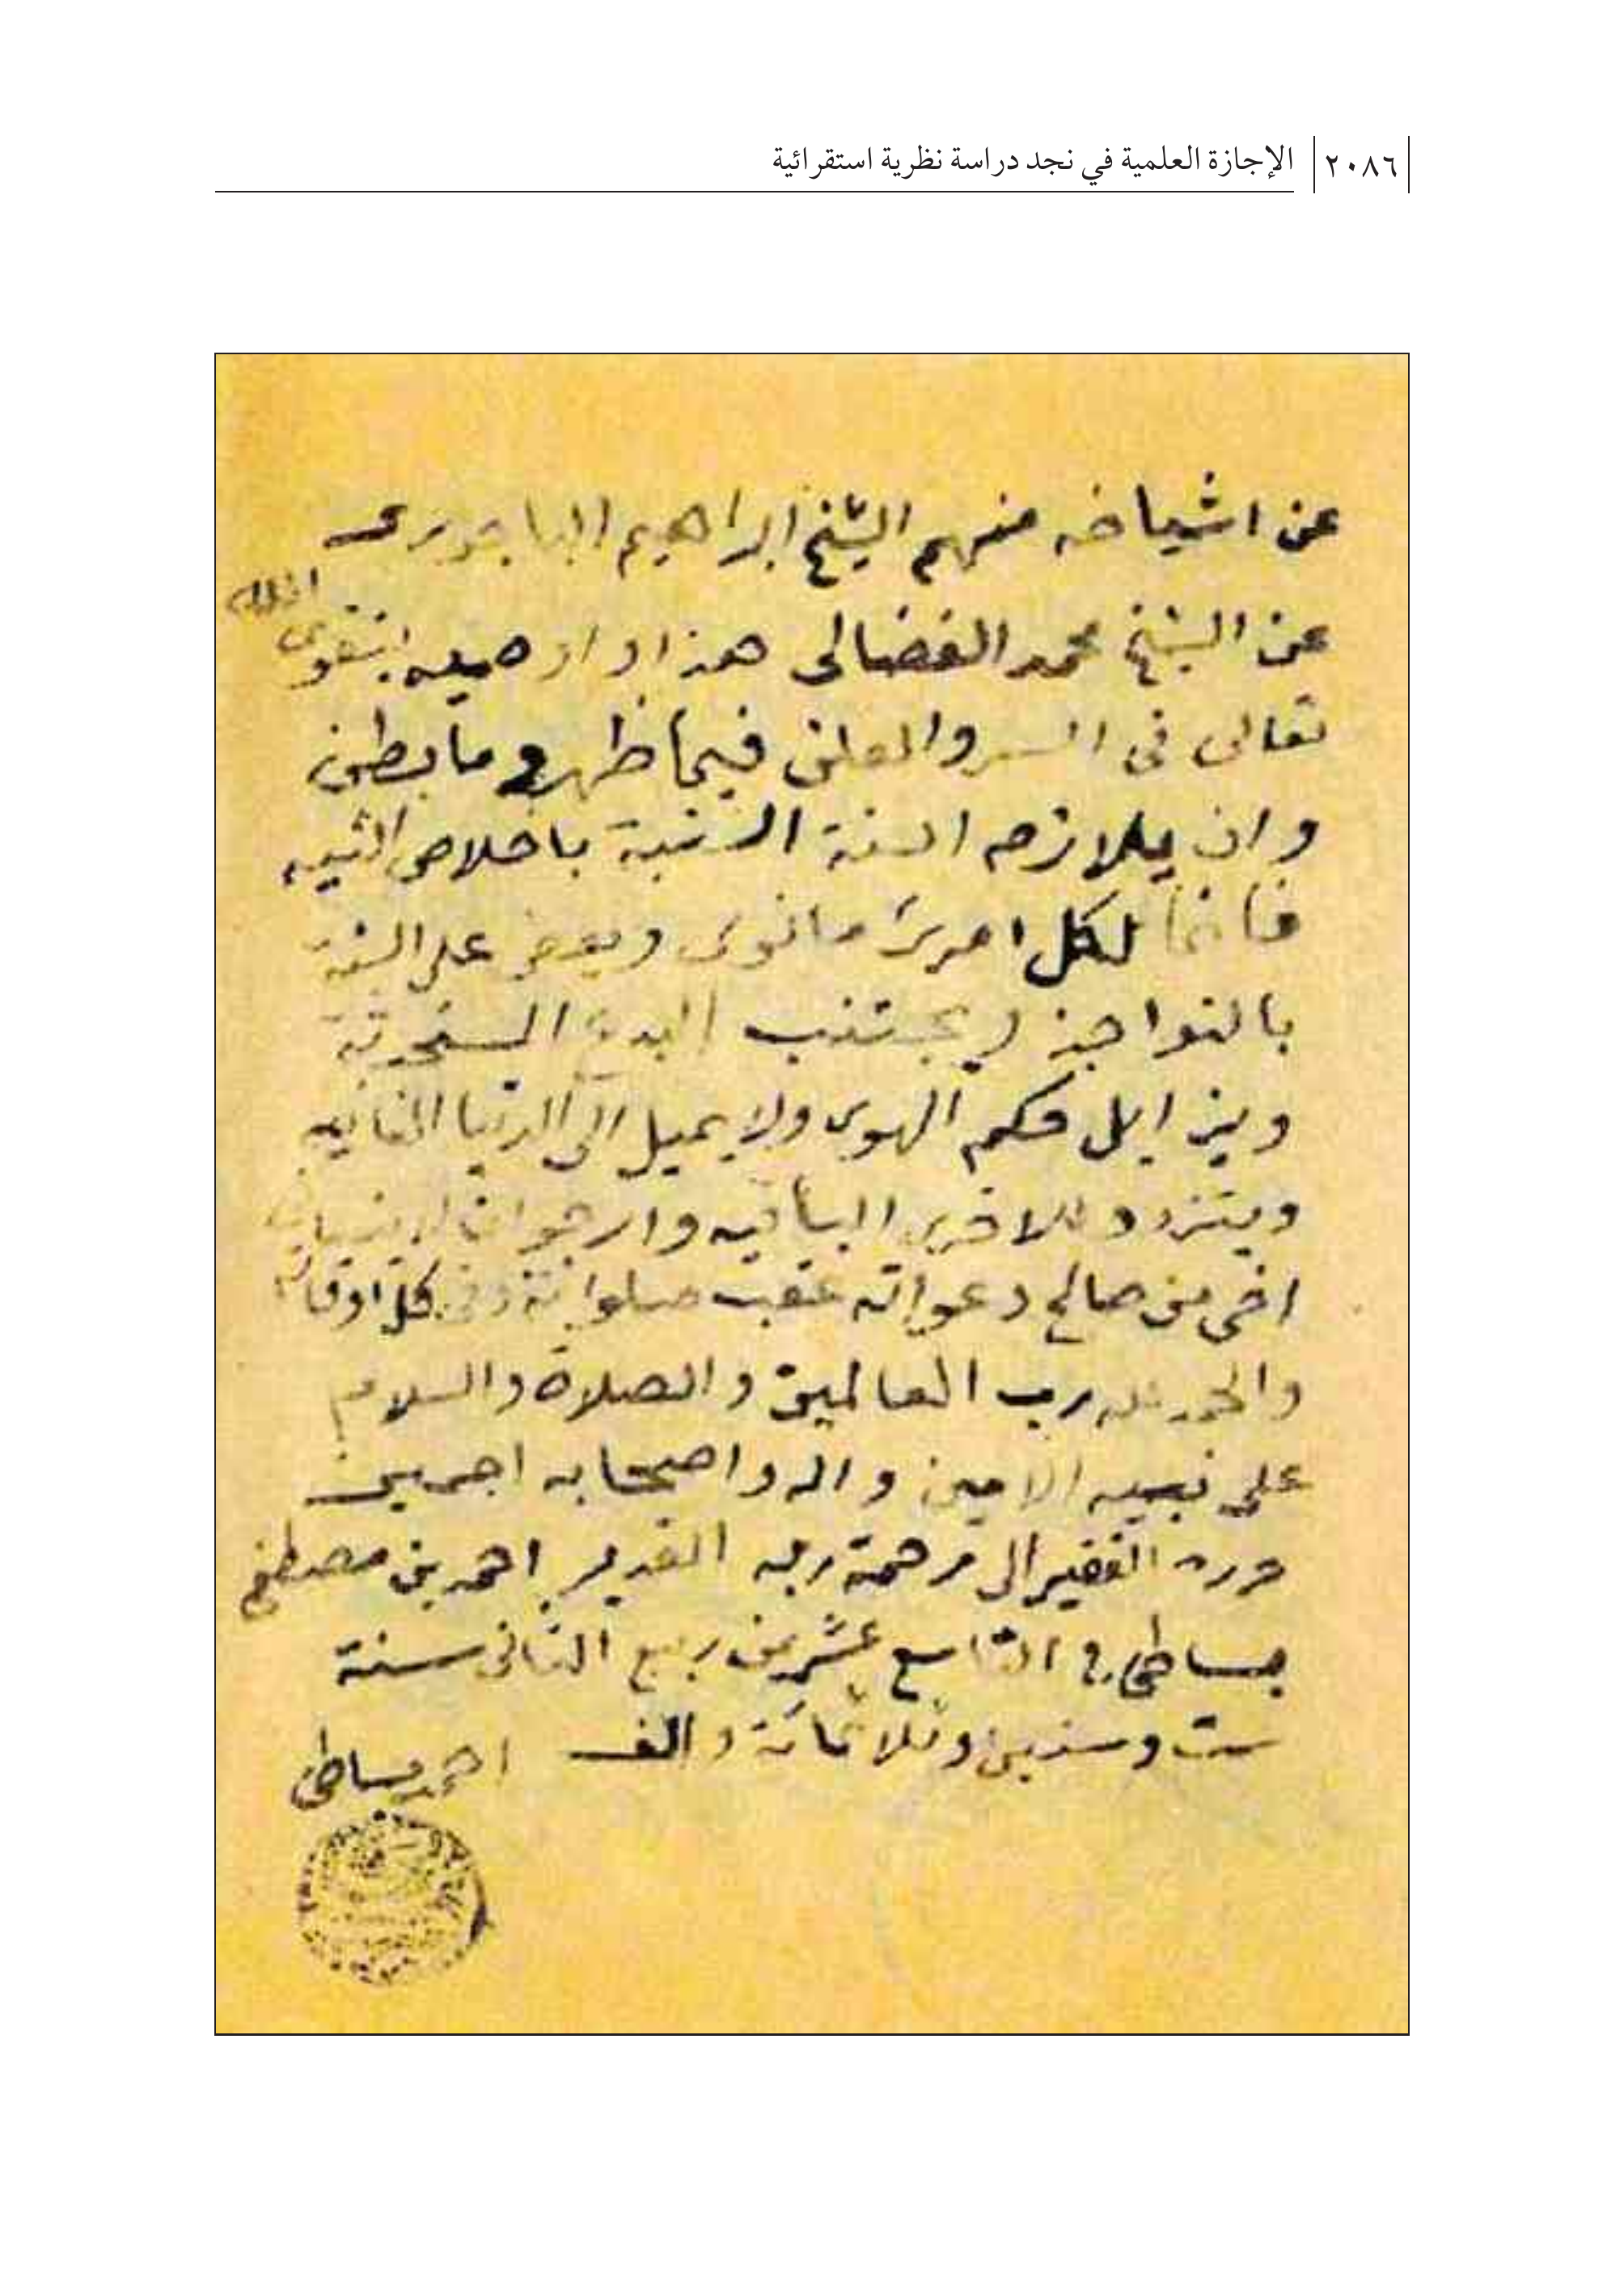 ٢٠٨٦ الإجازة العلمية في نجد دراسة نظرية استقرائية
عن اشياخه منهم الشيخ ابراهيم الباجورى
عن الشيخ محمد الفضالى هذا واوصيه بتقوى الله
تعالى فى السر والعلن فيما ظهر وما بطن
وان يلازم السنة السنية باخلاص النيه
فانما لكل امرئ ما نوى ويعض على السنة
بالنواجذ ويجتنب البدع
ويزايل حكم الهوى ولا يميل الى الدنيا الفانيه
ويتزود للاخرى الباقيه وارجو ان لا ينسانى
اخى من صالح دعواته عقب صلواته وفى كل اوقاته
والحمد لله رب العالمين والصلاة والسلام
على نبيه الامين واله واصحابه اجمعين
حرره الفقير الى رحمة ربه القدير احمد بن مصطفى
بساطى فى التاسع عشر من ربيع الثانى سنة
ست وستين وثلاثمائة والف احمد بساطى